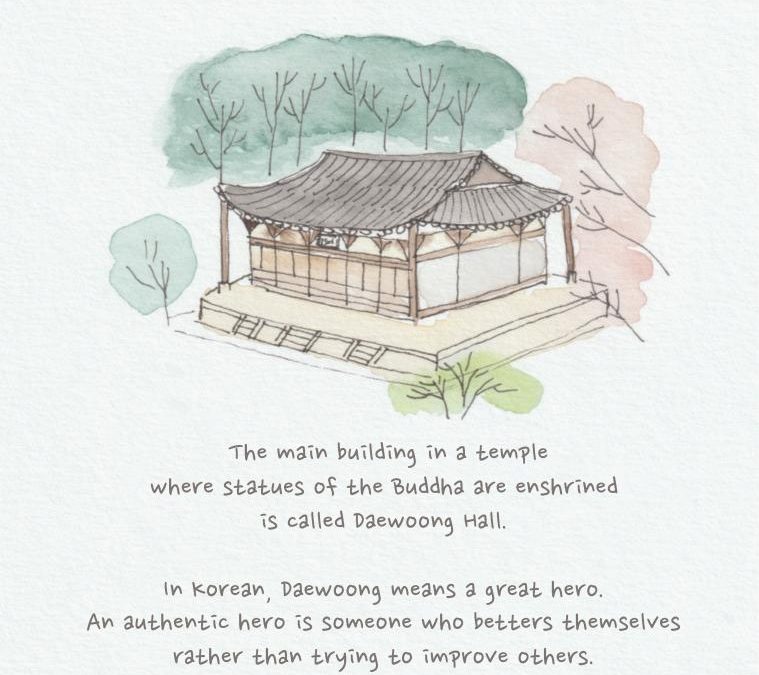 The main building in a temple
where statues of the Buddha are enshrined
is called Daewoong Hall.
In Korean, Daewoong means a great hero.
An authentic hero is someone who betters themselves
rather than trying to improve others.